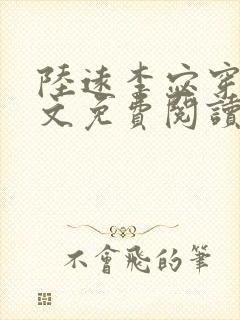 陸遠李宓穿
文免費閱讀
不會飛的筆